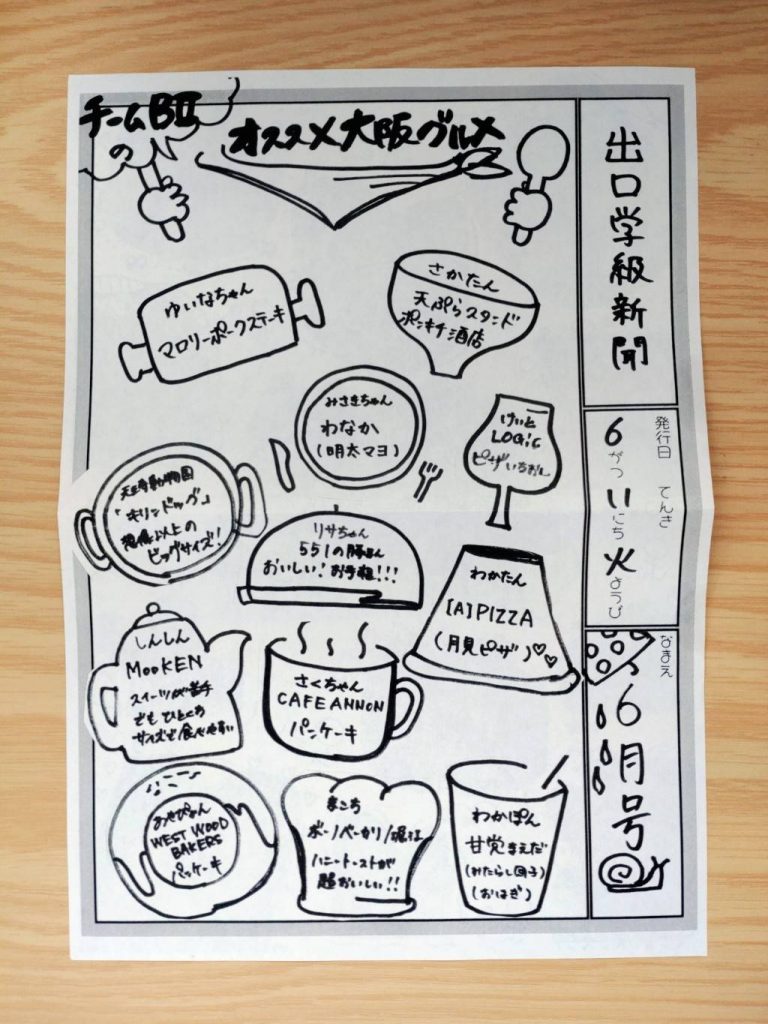 出口学級新聞
発行日
てんき
6がつ11にち火ようび
なまえ
6月号
チームBII
の
オススメ大阪グルメ
ゆいなちゃん
マロリーポークステーキ
さかたん
天ぷらスタンド
ポンキチ酒店
みさきちゃん
わなか
(明太マヨ)
けいと
LOGiC
ピザいちおし
天王寺動物園
「キリンドッグ」
想像以上の
ビッグサイズ!!
リサちゃん
551の豚まん
おいしい!お手軽!!!
わかたん
[A]PIZZA
(月見ピザ)♡♡
しんしん
MooKEN
スイーツが苦手
でもひとくち
サイズで食べやすい
さくちゃん
CAFE ANNON
パンケーキ
あやぴょん
WEST WOOD
BAKERS
パンケーキ
まこち
ボーノベーカリー/堀江
ハニートーストが
超おいしい!!
わかぽん
甘党まえだ
(みたらし団子)
(おはぎ)